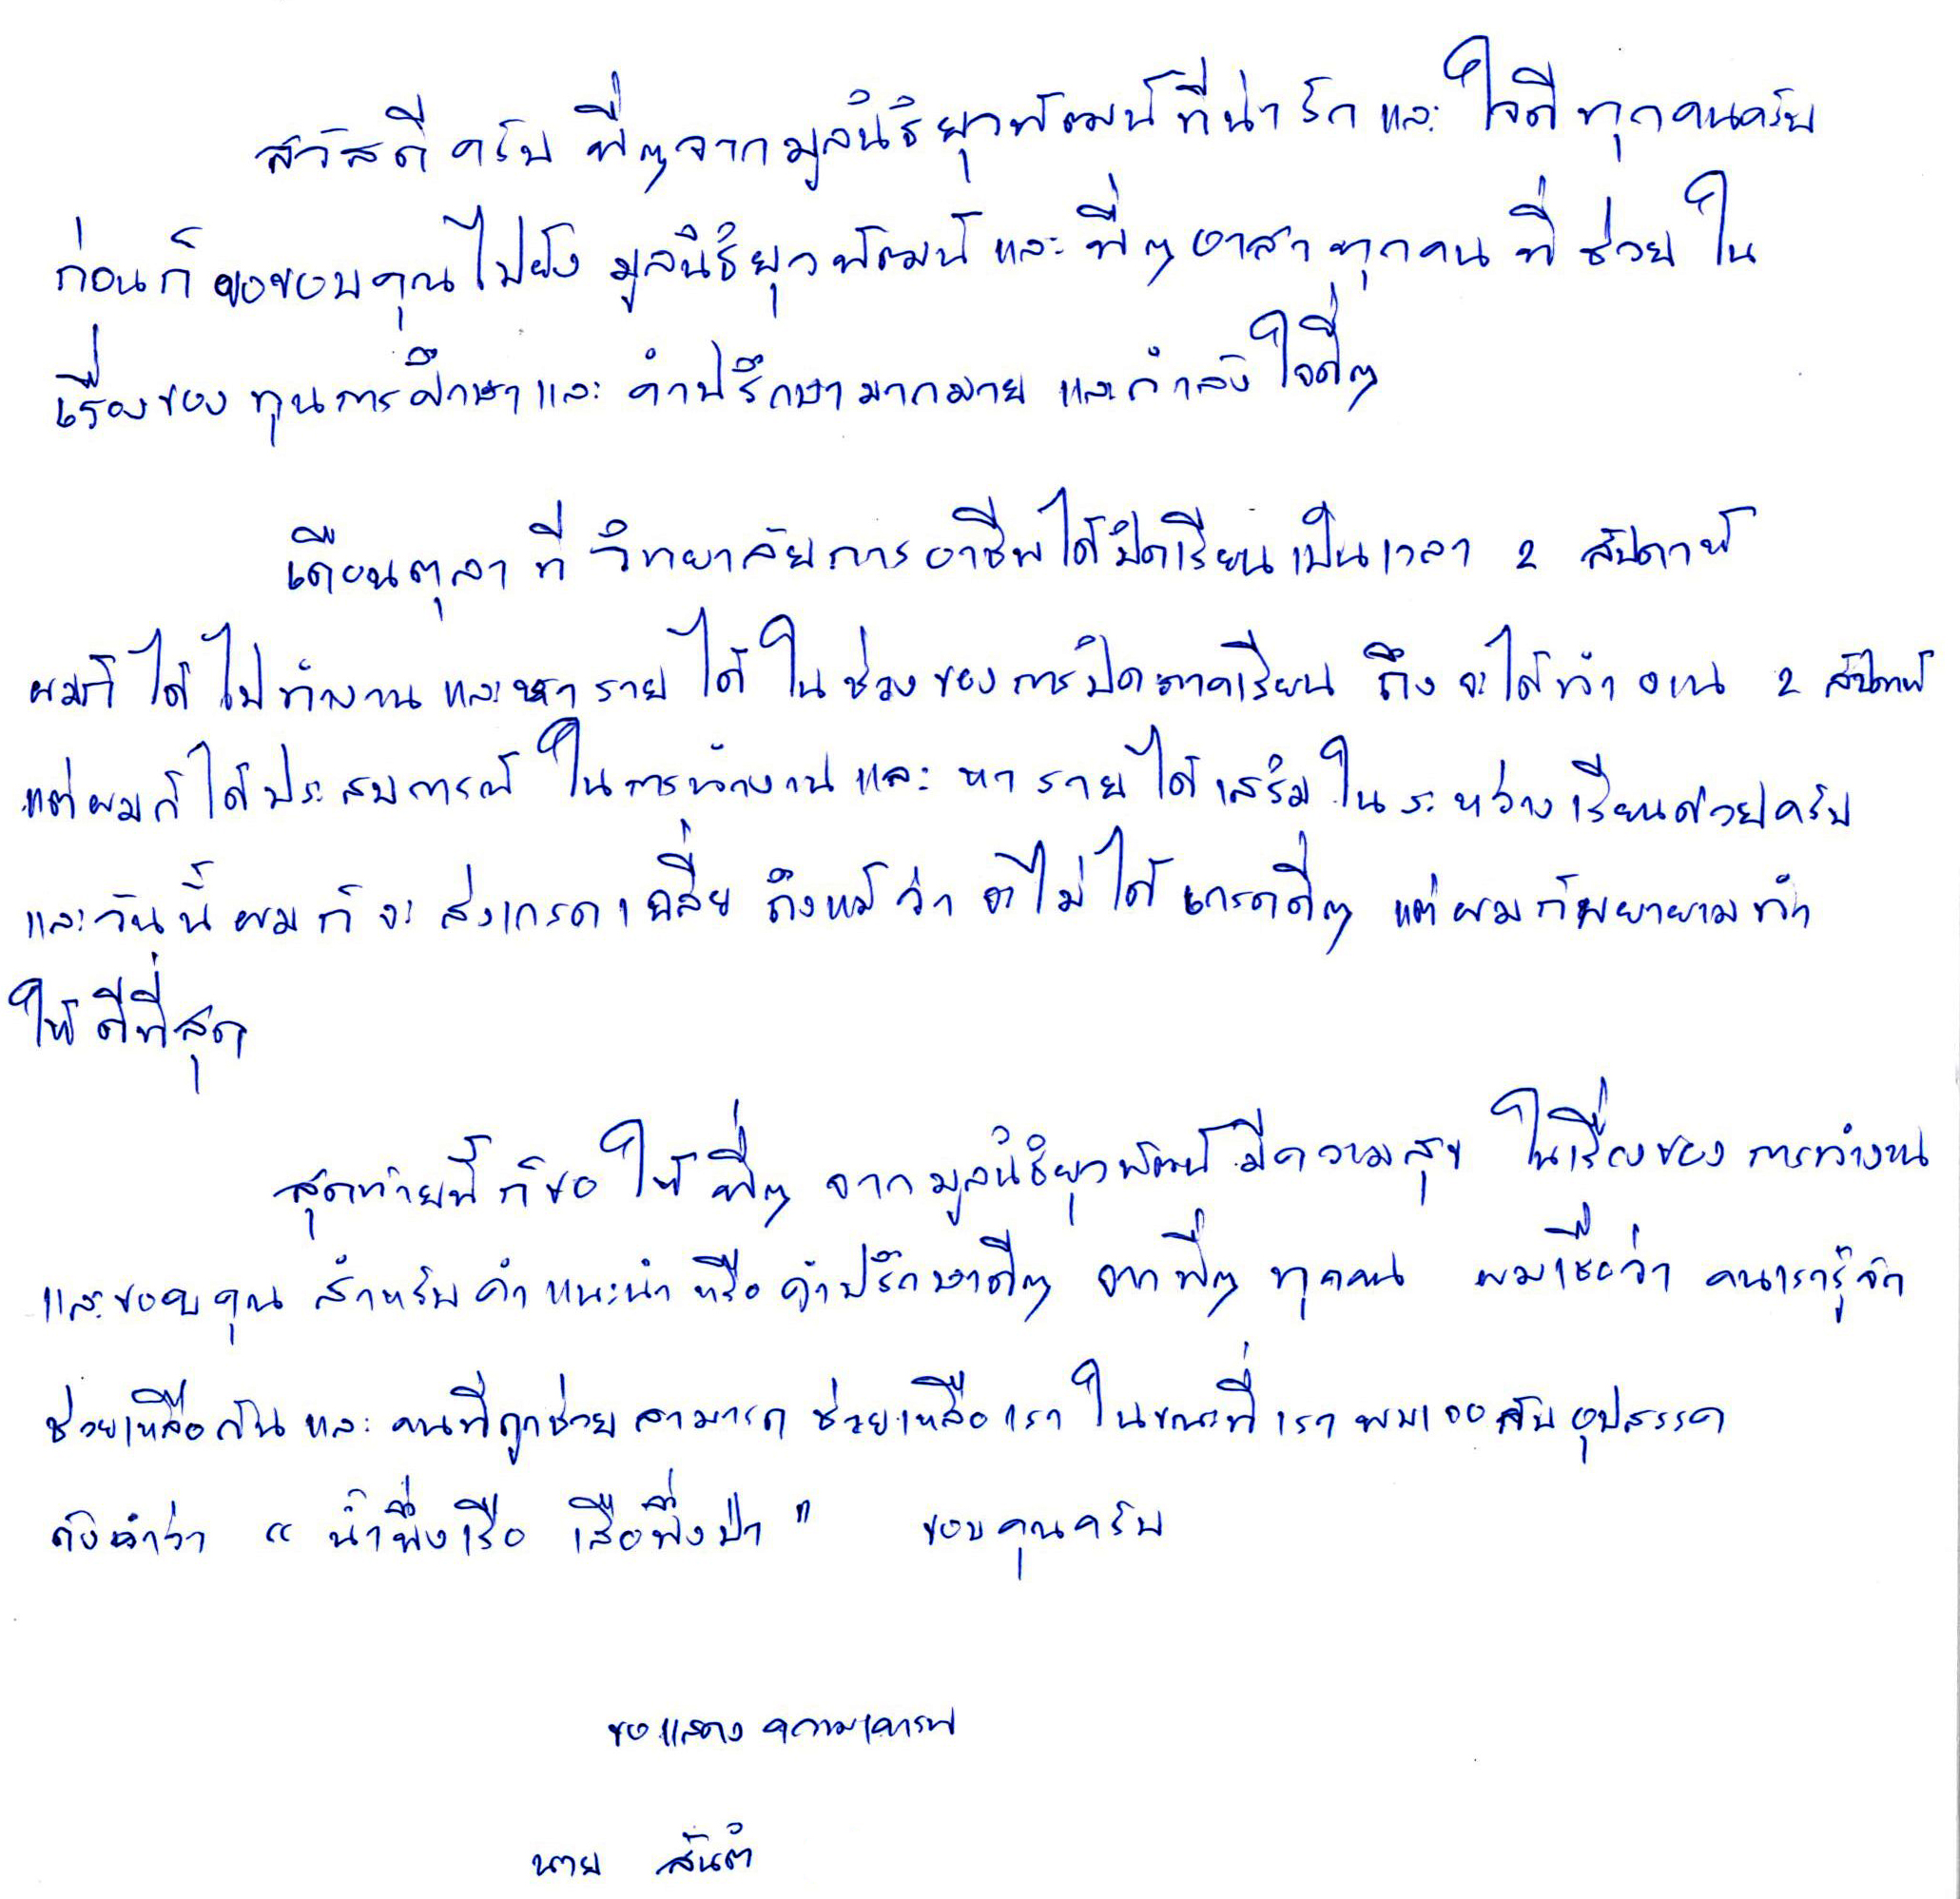 สวัสดีครับ พี่ๆจากมูลนิธิยุวพัฒน์ที่น่ารักและใจดีทุกคนครับ
ก่อนก็ขอขอบคุณไปยัง มูลนิธิยุวพัฒน์และพี่ๆอาสาทุกคนที่ช่วยใน
เรื่องของทุนการศึกษาและคำปรึกษามากมาย และกำลังใจดีๆ
เดือนตุลาที่วิทยาลัยการอาชีพได้ปิดเรียนเป็นเวลา 2 สัปดาห์
ผมก็ได้ไปทำงานและหารายได้ในช่วงของการปิดภาคเรียน ถึงจะได้ทำงาน 2 สัปดาห์
แต่ผมก็ได้ประสบการณ์ในการทำงานและหารายได้เสริมในระหว่างเรียนด้วยครับ
และวันนี้ผมก็จะส่งเกรดเฉลี่ย ถึงแม้ว่าจะไม่ได้เกรดดีๆ แต่ผมก็พยายามทำ
ให้ดีที่สุด
สุดท้ายนี้ก็ขอให้พี่ๆ จากมูลนิธิยุวพัฒน์มีความสุข ในเรื่องของการทำงาน
และขอบคุณ สำหรับคำแนะนำหรือคำปรึกษาดีๆ จากพี่ๆ ทุกคน ผมเชื่อว่า คนเรารู้จัก
ช่วยเหลือกันและคนที่ถูกช่วยสามารถช่วยเหลือเราในขณะที่เราพบเจอกับอุปสรรค
ดังคำว่า “น้ำพึ่งเรือ เสือพึ่งป่า” ขอบคุณครับ
ขอแสดงความเคารพ
นาย สันติ